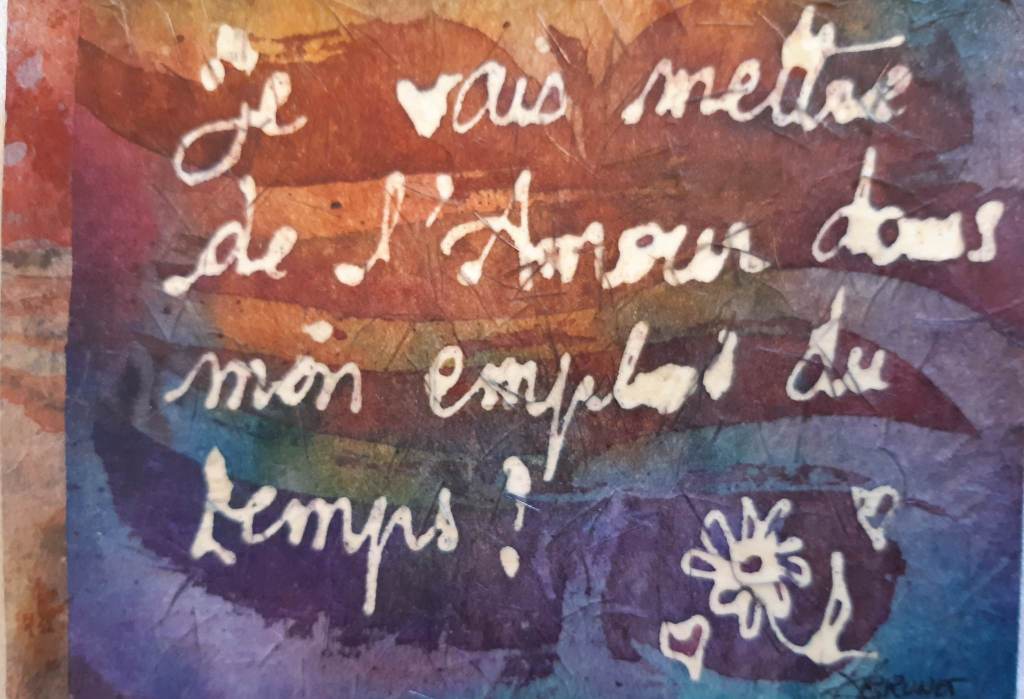 je vais mettre
de l'Amour dans
mon emploi du
temps !